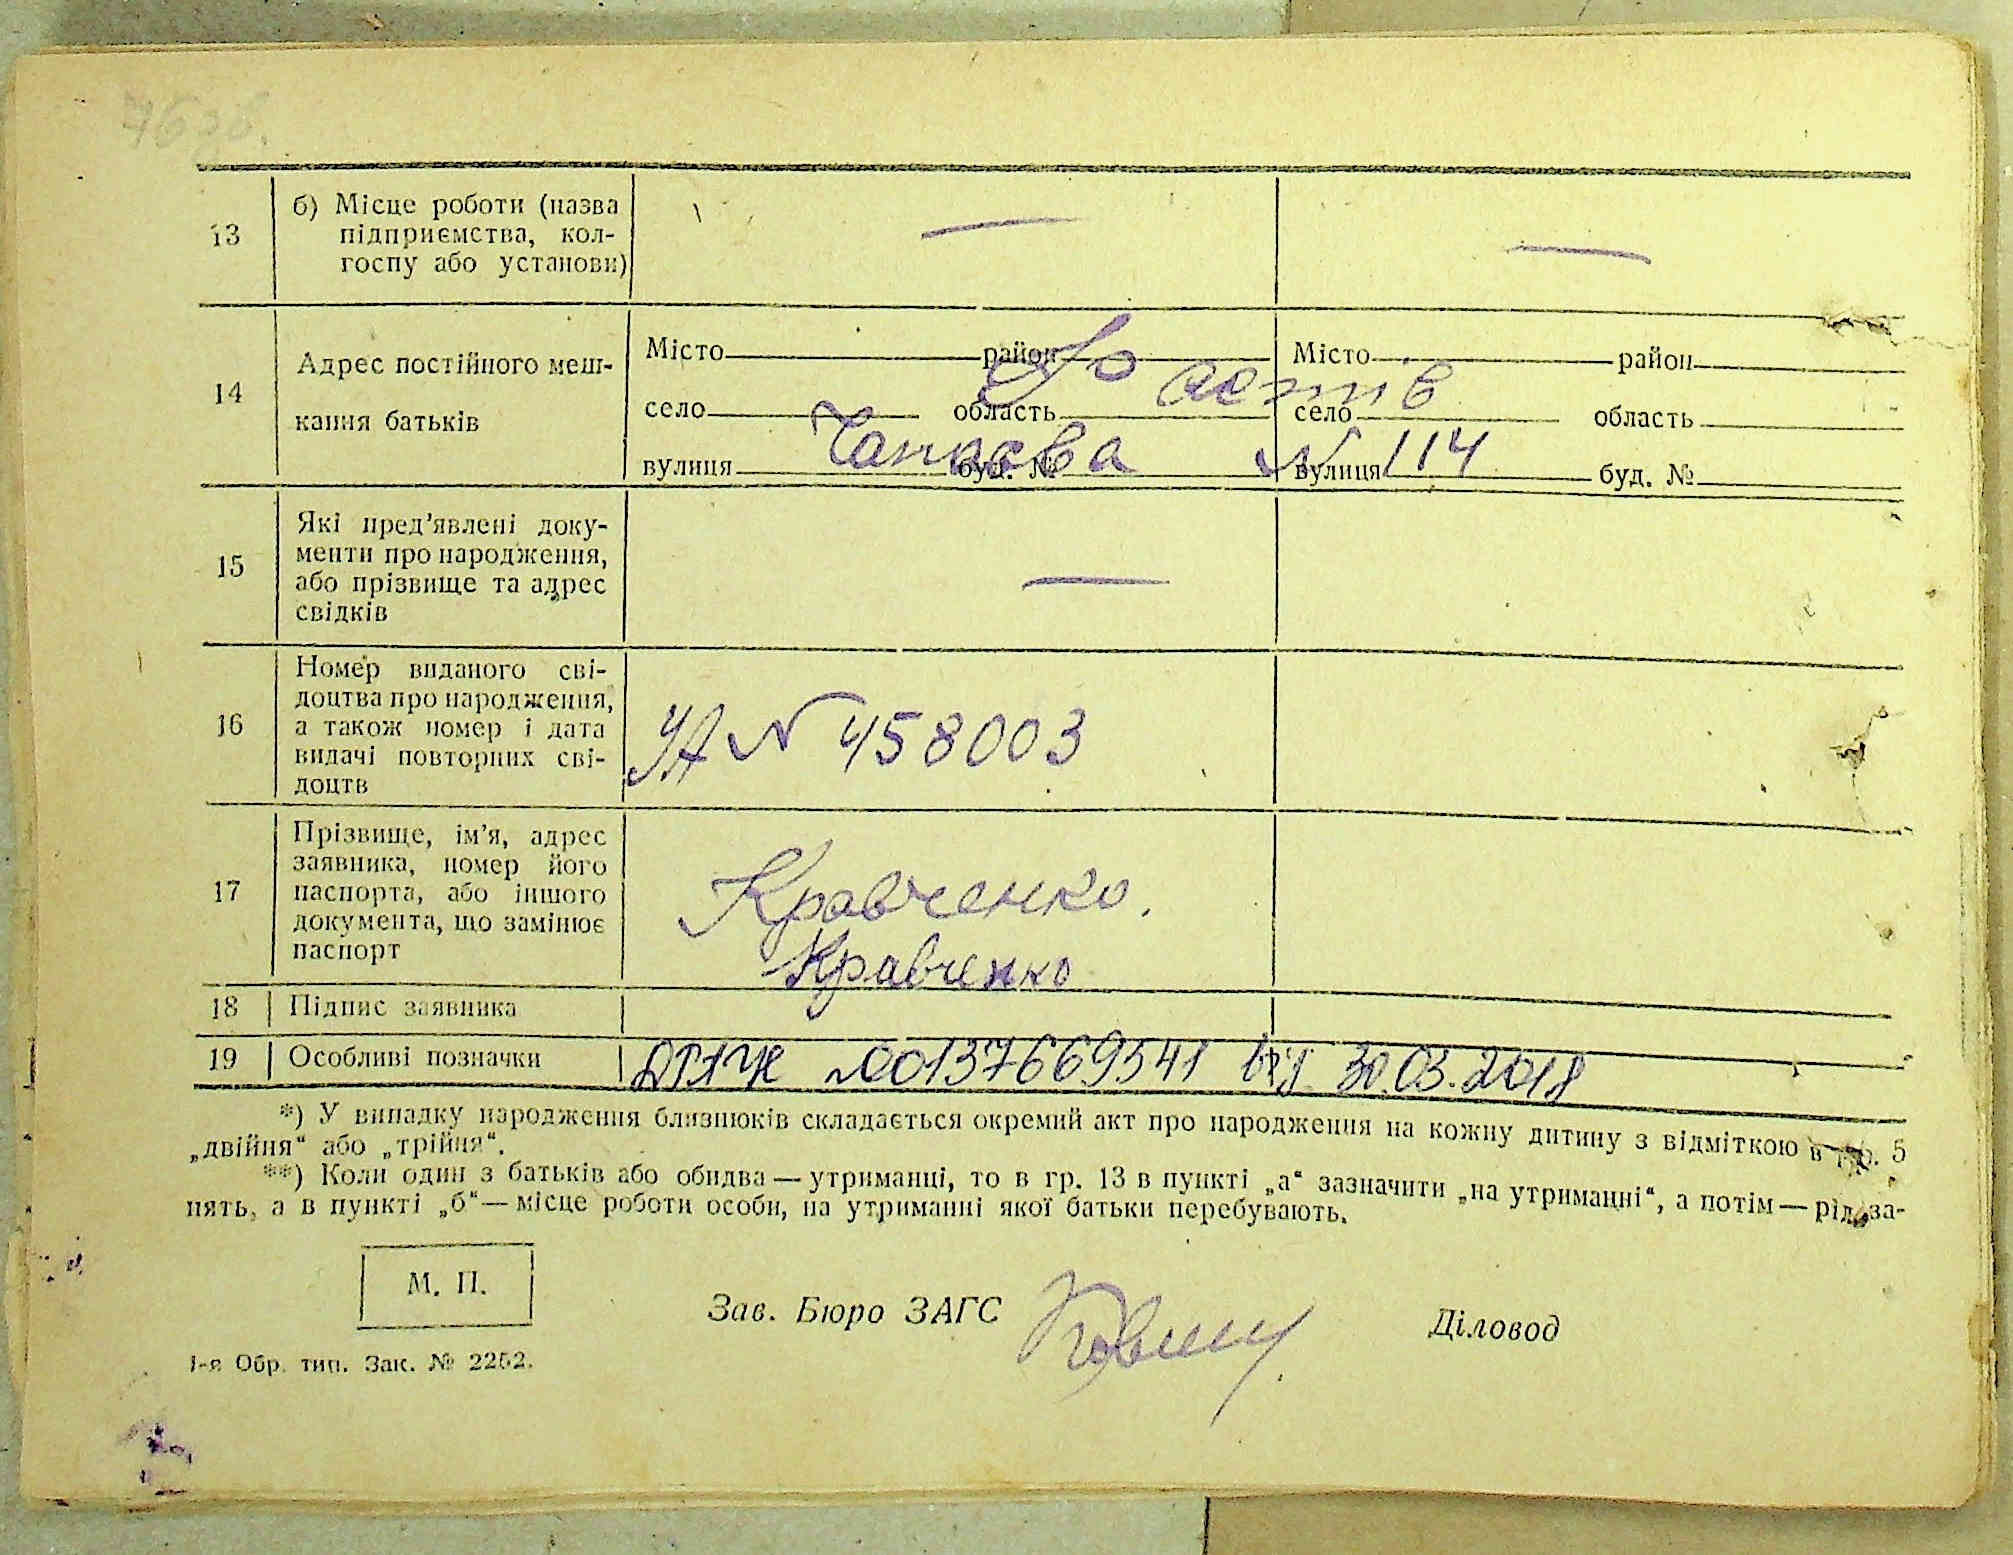 76 зв.
13
б) Місце роботи (назва
підприємства, кол-
госпу або установи)
—
—
14
Адрес постійного меш-
кання батьків
Місто район Місто район
село область село область
вулиця буд. № вулиця буд. №
N 114
15
Які пред’явлені доку-
менти про народження,
або прізвище та адрес
свідків
—
16
Номер виданого сві-
доцтва про народження,
а також номер і дата
видачі повторних сві-
доцтв
УА N 458003
17
Прізвище, ім’я, адрес
заявника, номер його
паспорта, або іншого
документа, що замінює
паспорт
Кравченко.
Кравченко
18 Підпис заявника
19 Особливі позначки
№00137669541 від 30.03.2018
*) У випадку народження близнюків складається окремий акт про народження на кожну дитину з відміткою в гр. 5
„двійня“ або „трійня“.
**) Коли один з батьків або обидва — утриманці, то в гр. 13 в пункті „а“ зазначити „на утриманні“, а потім — рід за-
нять, а в пункті „б“ — місце роботи особи, на утриманні якої батьки перебувають.
М. П.
Зав. Бюро ЗАГС
Діловод
1-я Обр. тип. Зак. № 2252.